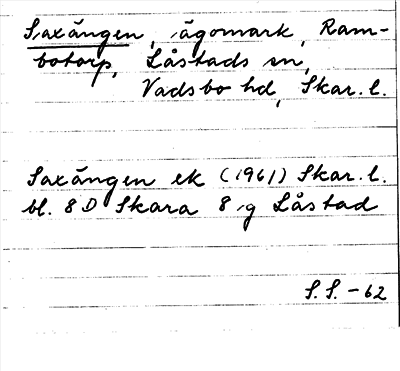 Saxängen, ägomark, Ram-
botorp, Låstads sn,
Vadsbo hd, Skar. l.
Saxängen ek (1961) Skar. l.
bl. 8 D Skara 8 g Låstad
S. S. - 62